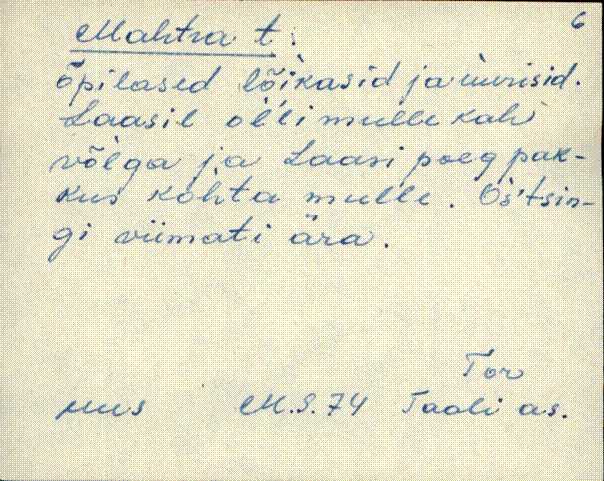 6
Mahtra t.
õpilased lõikasid ja uurisid.
Laasil ol'li mulle kah'
võlga ja Laasi poeg pak-
kus kohta mulle. Os'tsin-
gi viimati ära.
Tor
MUS M.S. 74 Taali as.